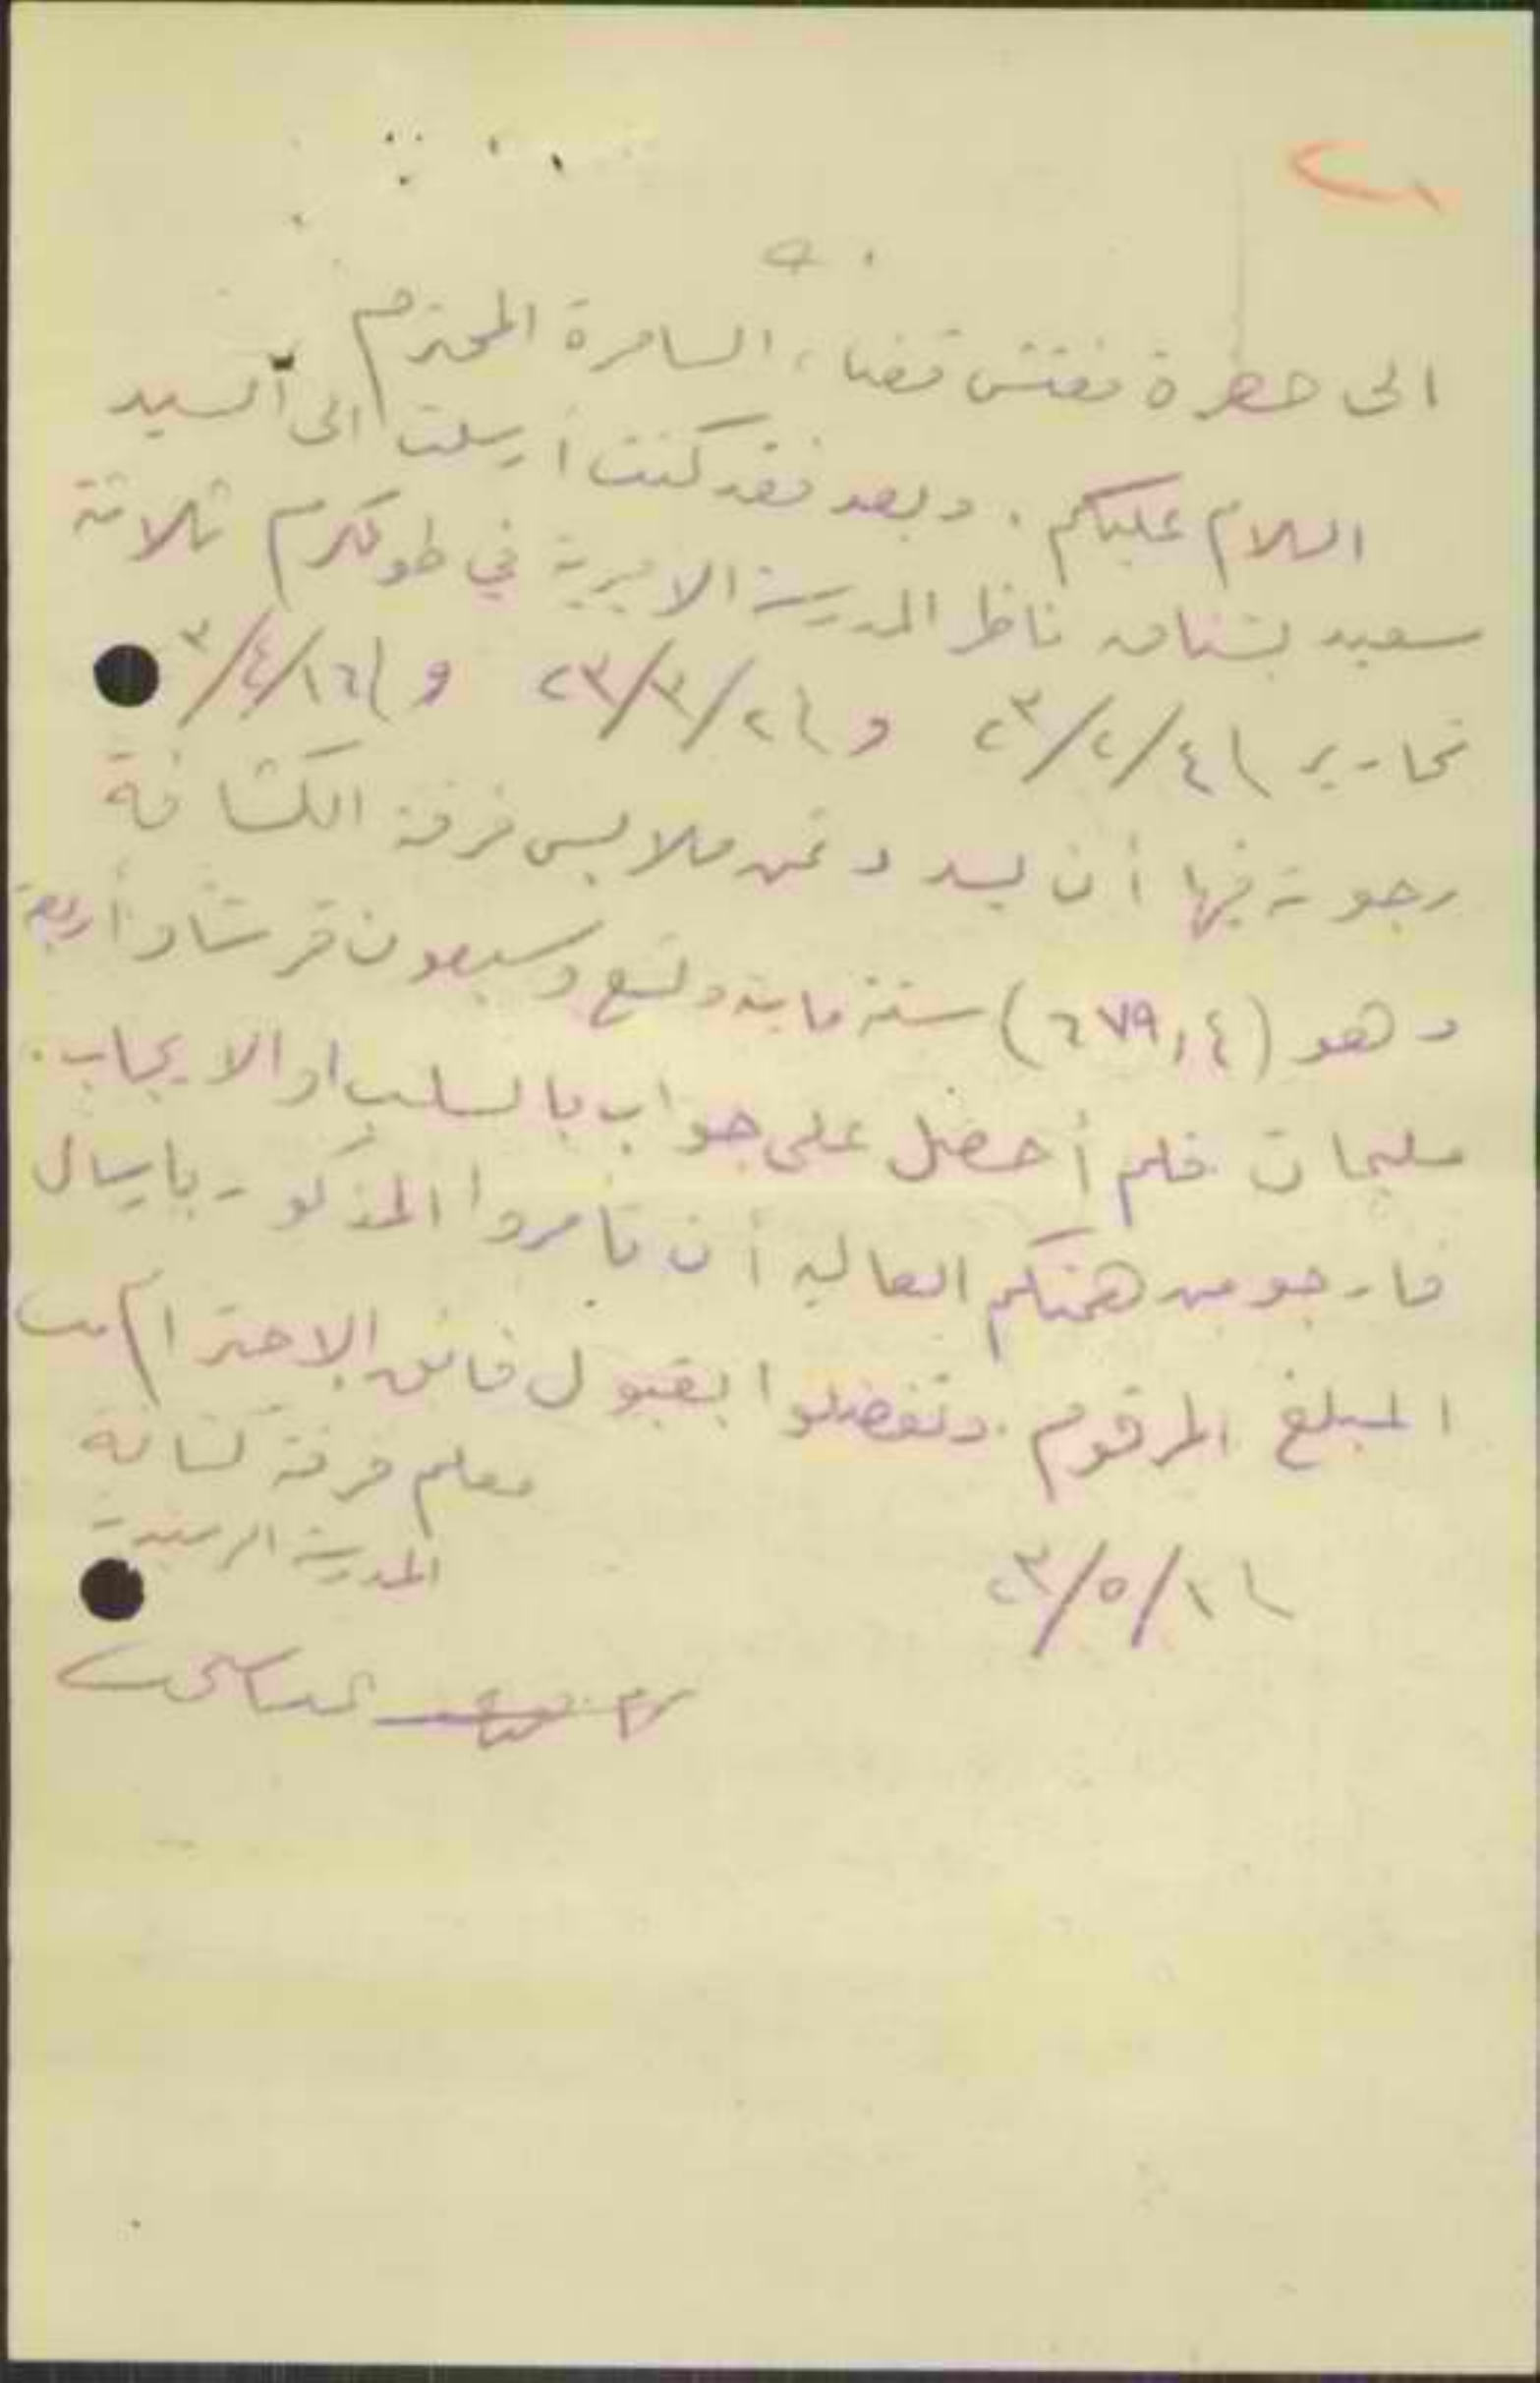 ٢١
الى حضرة مفتش قضاء السامرة المحترم
السلام عليكم . وبعد فقد كنت أرسلت الى السيد
سعيد بشناق ناظر المدرسة الاميرية في طولكرم ثلاثة
تحارير ٢٣/٢/٤ و ٢٣/٣/٢ و ١٦/٤/٣
رجوته فيها أن يسدد ثمن ملابس فرقة الكشافة
وهو (٦٧٩,٤) ستة ماية وتسع وسبعون قرشا وأربعة
مليمات فلم أحصل على جواب بالسلب او الايجاب .
فارجو من همتكم العالية أن تأمروا المذكور بارسال
المبلغ المرقوم . وتفضلوا بقبول فائق الاحترام
معلم فرقة كشافة
المدرسة الرشيدية
٢٣/٥/١